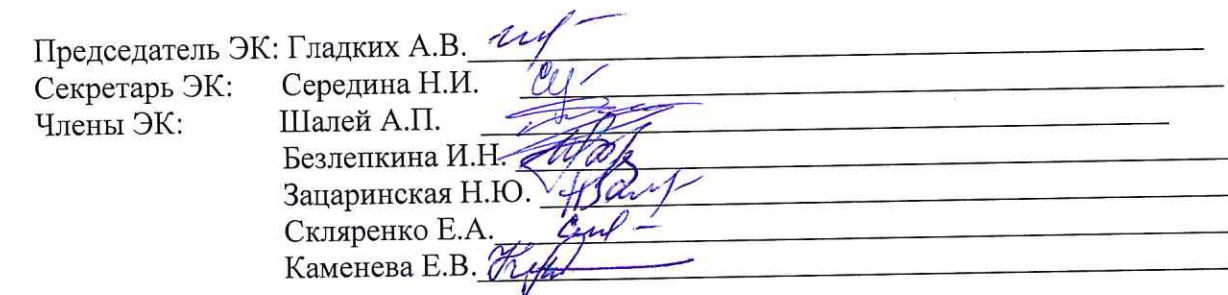 Председатель ЭК: Гладких А.В.
Секретарь ЭК: Середина Н.И.
Члены ЭК: Шалей А.П.
Безлепкина И.Н.
Зацаринская Н.Ю.
Скляренко Е.А.
Каменева Е.В.